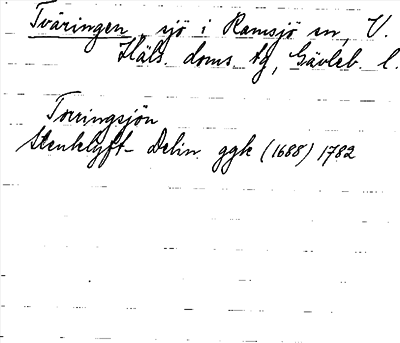 Tväringen, sjö i Ramsjö sn, V.
Häls. doms. tg, Gävleb. l.
Torringsjön
Stenklyft- Delin. ggk (1688) 1782